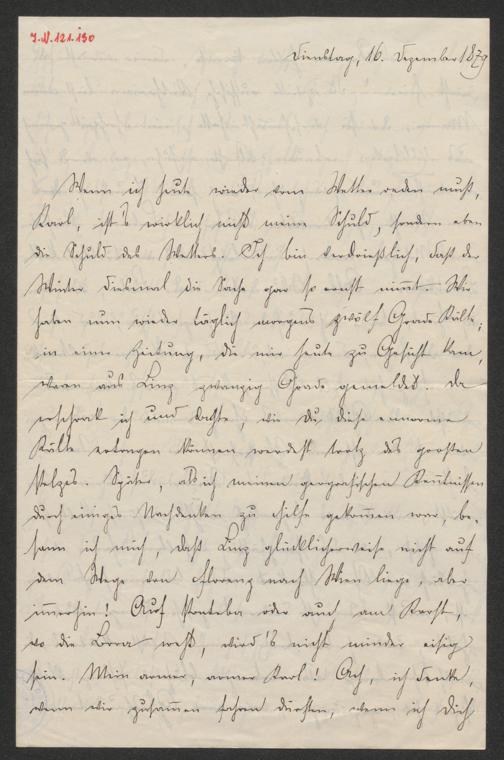 J.N. 121.130
Dienstag, 16. Dezember 1879
Wenn ich heute wieder vom Wetter reden muß,
Karl, ist's wirklich nicht meine Schuld, sondern eben
die Schuld des Wetters. Ich bin verdrießlich, daß der
Winter diesmal die Sache gar so ernst nimmt. Wir
haben nun wieder täglich morgens zwölf Grade Kälte,
in einer Zeitung, die mir heute zu Gesicht kam,
waren aus Linz zwanzig Grade gemeldet. Da
erschrak ich und dachte, wie Du diese enorme
Kälte ertragen können werdest trotz des großen
Pelzes. Später, als ich meinen geografischen Kenntnissen
durch einiges Nachdenken zu Hilfe gekommen war, be-
sann ich mich, daß Linz glücklicherweise nicht auf
dem Wege von Florenz nach Wien liege, aber
immerhin! Auf Ponteba oder auch am Karst,
wo die Bora weht, wird's nicht minder eisig
sein. Mein armer, armer Karl! Ach, ich denke,
wenn wir zusammen fahren dürften, wenn ich Dich